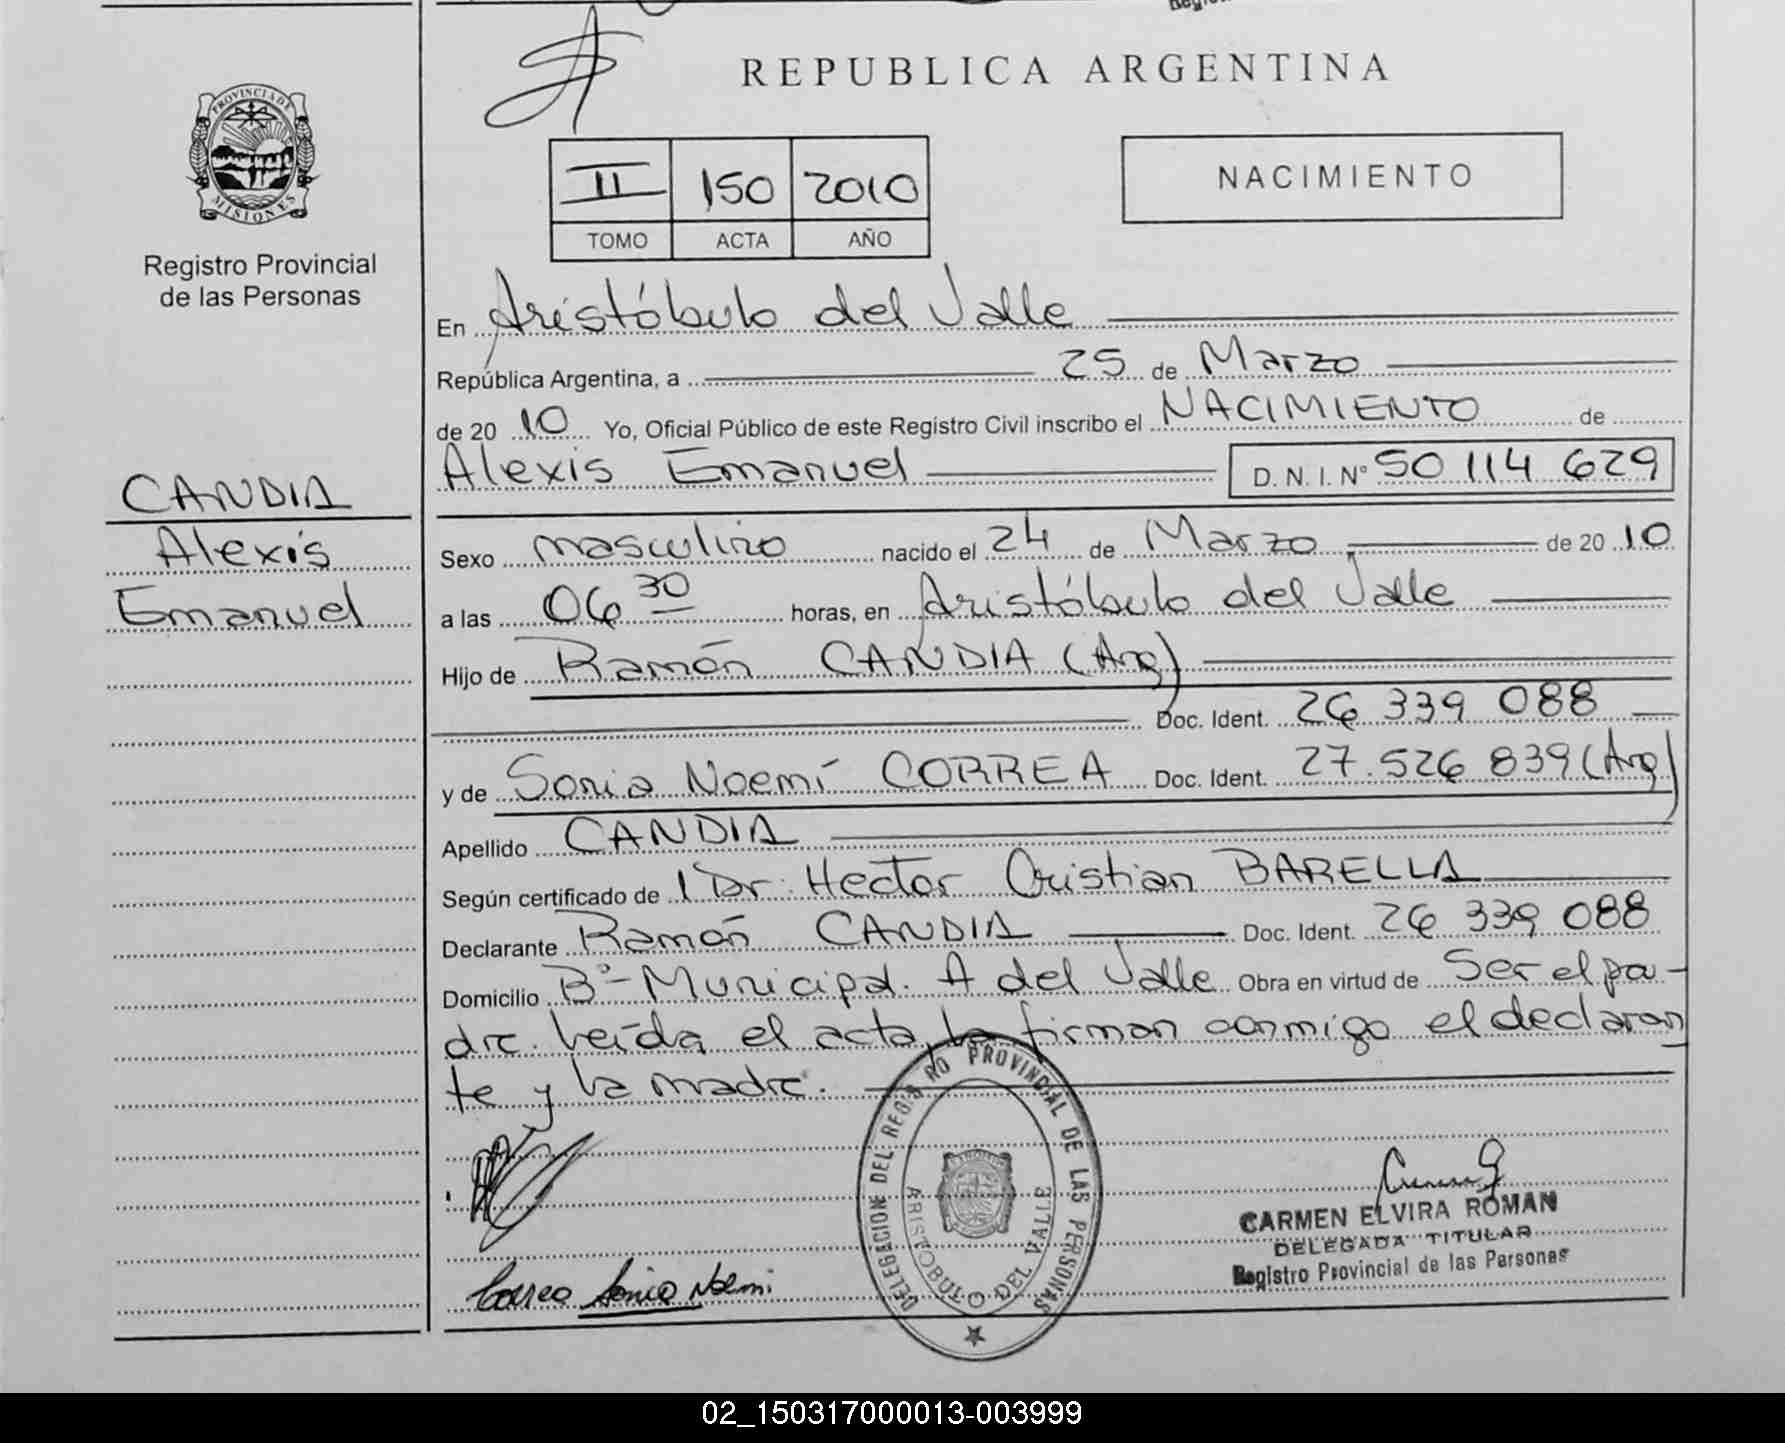 REPUBLICA ARGENTINA
PROVINCIA DE
MISIONES
Registro Provincial
de las Personas
II 150 2010
TOMO ACTA AÑO
NACIMIENTO
En Aristóbulo del Valle
República Argentina, a 25 de Marzo
de 20 10 Yo, Oficial Público de este Registro Civil inscribo el NACIMIENTO de
Alexis Emanuel D.N.I. Nº 50 114 629
CANDIA
Alexis
Emanuel
Sexo masculino nacido el 24 de Marzo de 20 10
a las 06 30 horas, en Aristóbulo del Valle
Hijo de Ramón CANDIA (Arg)
Doc. Ident. 26 339 088
y de Sonia Noemí CORREA Doc. Ident. 27.526 839 (Arg)
Apellido CANDIA
Según certificado de l Dr. Hector Cristian BARELLA
Declarante Ramón CANDIA Doc. Ident. 26 339 088
Domicilio Bº- Municipal. A del Valle Obra en virtud de Ser el pa-
dre. Leída el acta, la firman conmigo el declaran
te y la madre.
DELEGACION DEL REGIS RO PROVINCIAL DE LAS PERSONAS
ARISTOBULO DEL VALLE
CARMEN ELVIRA ROMAN
DELEGADA TITULAR
Registro Provincial de las Personas
Correa Sonia Noemi
02_150317000013-003999